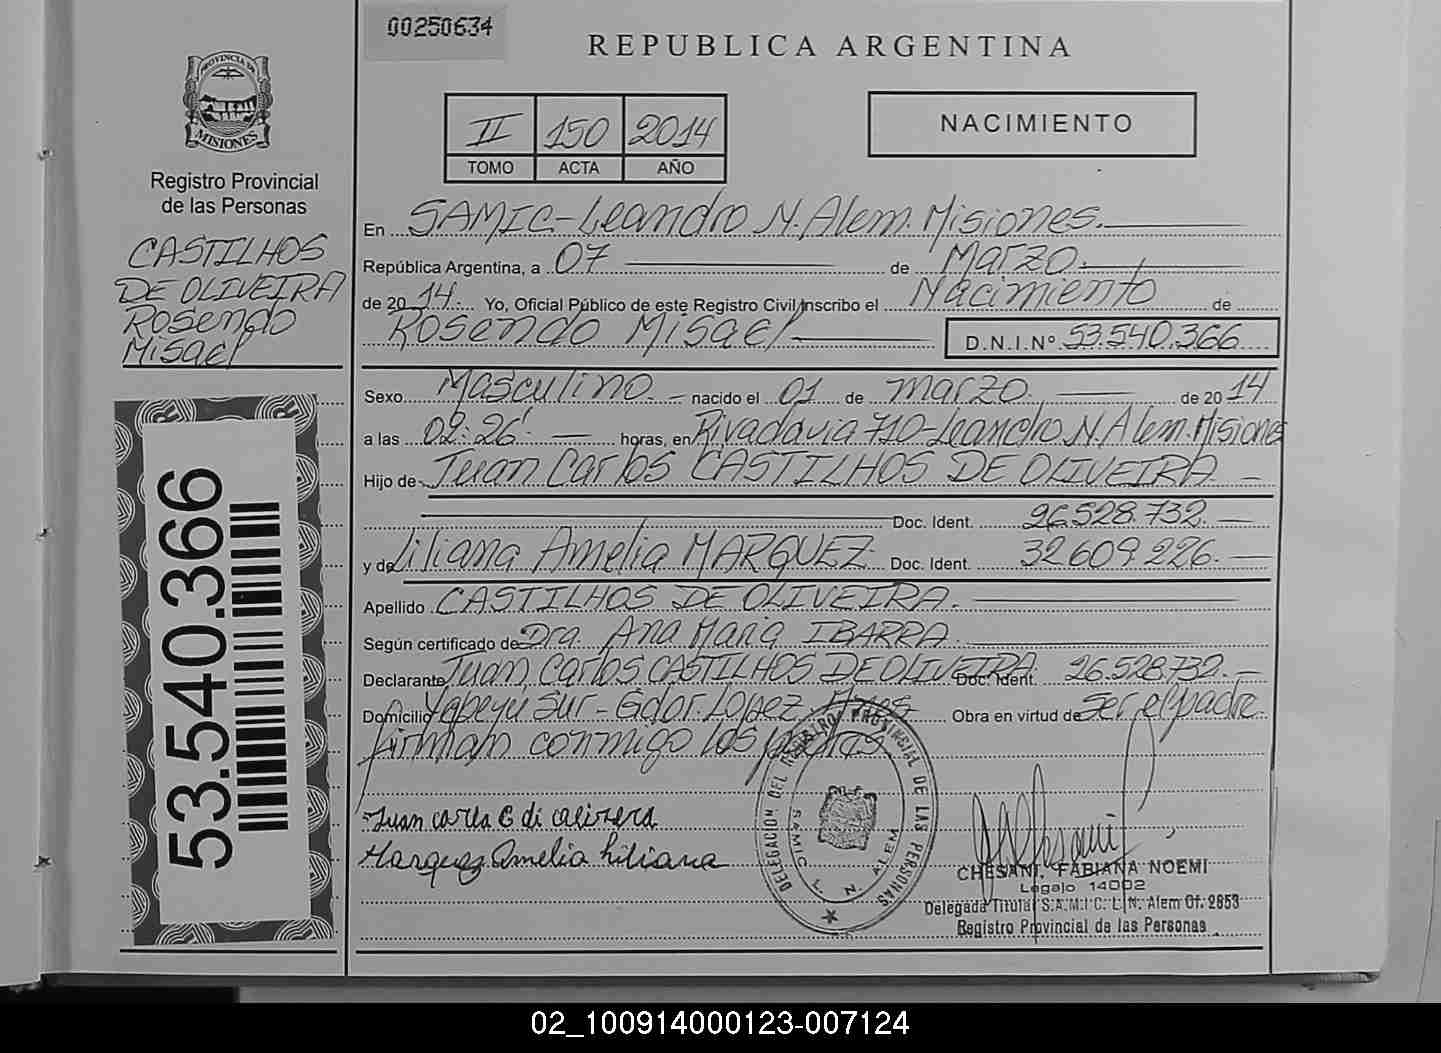 00250634
REPUBLICA ARGENTINA
PROVINCIA DE
MISIONES
Registro Provincial
de las Personas
CASTILHOS
DE OLIVEIRA
Rosendo
Misael
53.540.366
II 150 2014
TOMO ACTA AÑO
NACIMIENTO
En SAMIC-Leandro N. Alem. Misiones.
República Argentina, a 07 de Marzo.
de 2014. Yo, Oficial Público de este Registro Civil Inscribo el Nacimiento de
Rosendo Misael D.N.I.Nº 53.540.366
Sexo Masculino. nacido el 01 de marzo. de 2014
a las 02:26' horas, en Rivadavia 710-Leandro N. Alem. Misiones
Hijo de Juan Carlos CASTILHOS DE OLIVEIRA
Doc. Ident. 26.528.732.
y de Liliana Amelia MARQUEZ Doc. Ident. 32.609.226.
Apellido CASTILHOS DE OLIVEIRA.
Según certificado de Dra. Ana Maria IBARRA.
Declarante Juan Carlos CASTILHOS DE OLIVEIRA Doc. Ident. 26.528.732.
Domicilio Yapeyú Sur-Gdor. Lopez. Mnes Obra en virtud de Ser el padre
firman conmigo los padres
Juan carlos C di
Marquez Amelia Liliana
DELEGACION DEL REGISTRO PROVINCIAL DE LAS PERSONAS
SAMIC L. N. ALEM
CHESANI, FABIANA NOEMI
Legajo 14002
Delegada Titular S.A.M.I.C. L. N. Alem Of. 2853
Registro Provincial de las Personas
02_100914000123-007124